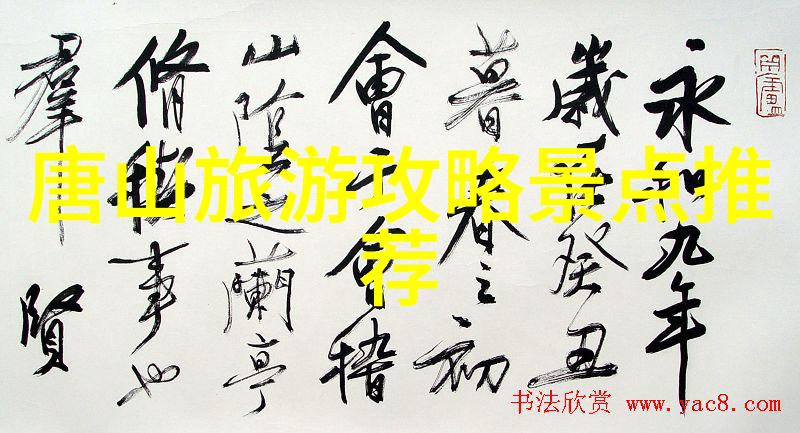 永和九年
歲在癸丑
暮春之初
會于會稽
山陰之蘭亭
脩稧事也
羣賢
唐山旅游攻略景点推
荐
书法欣赏 www.yac8.com